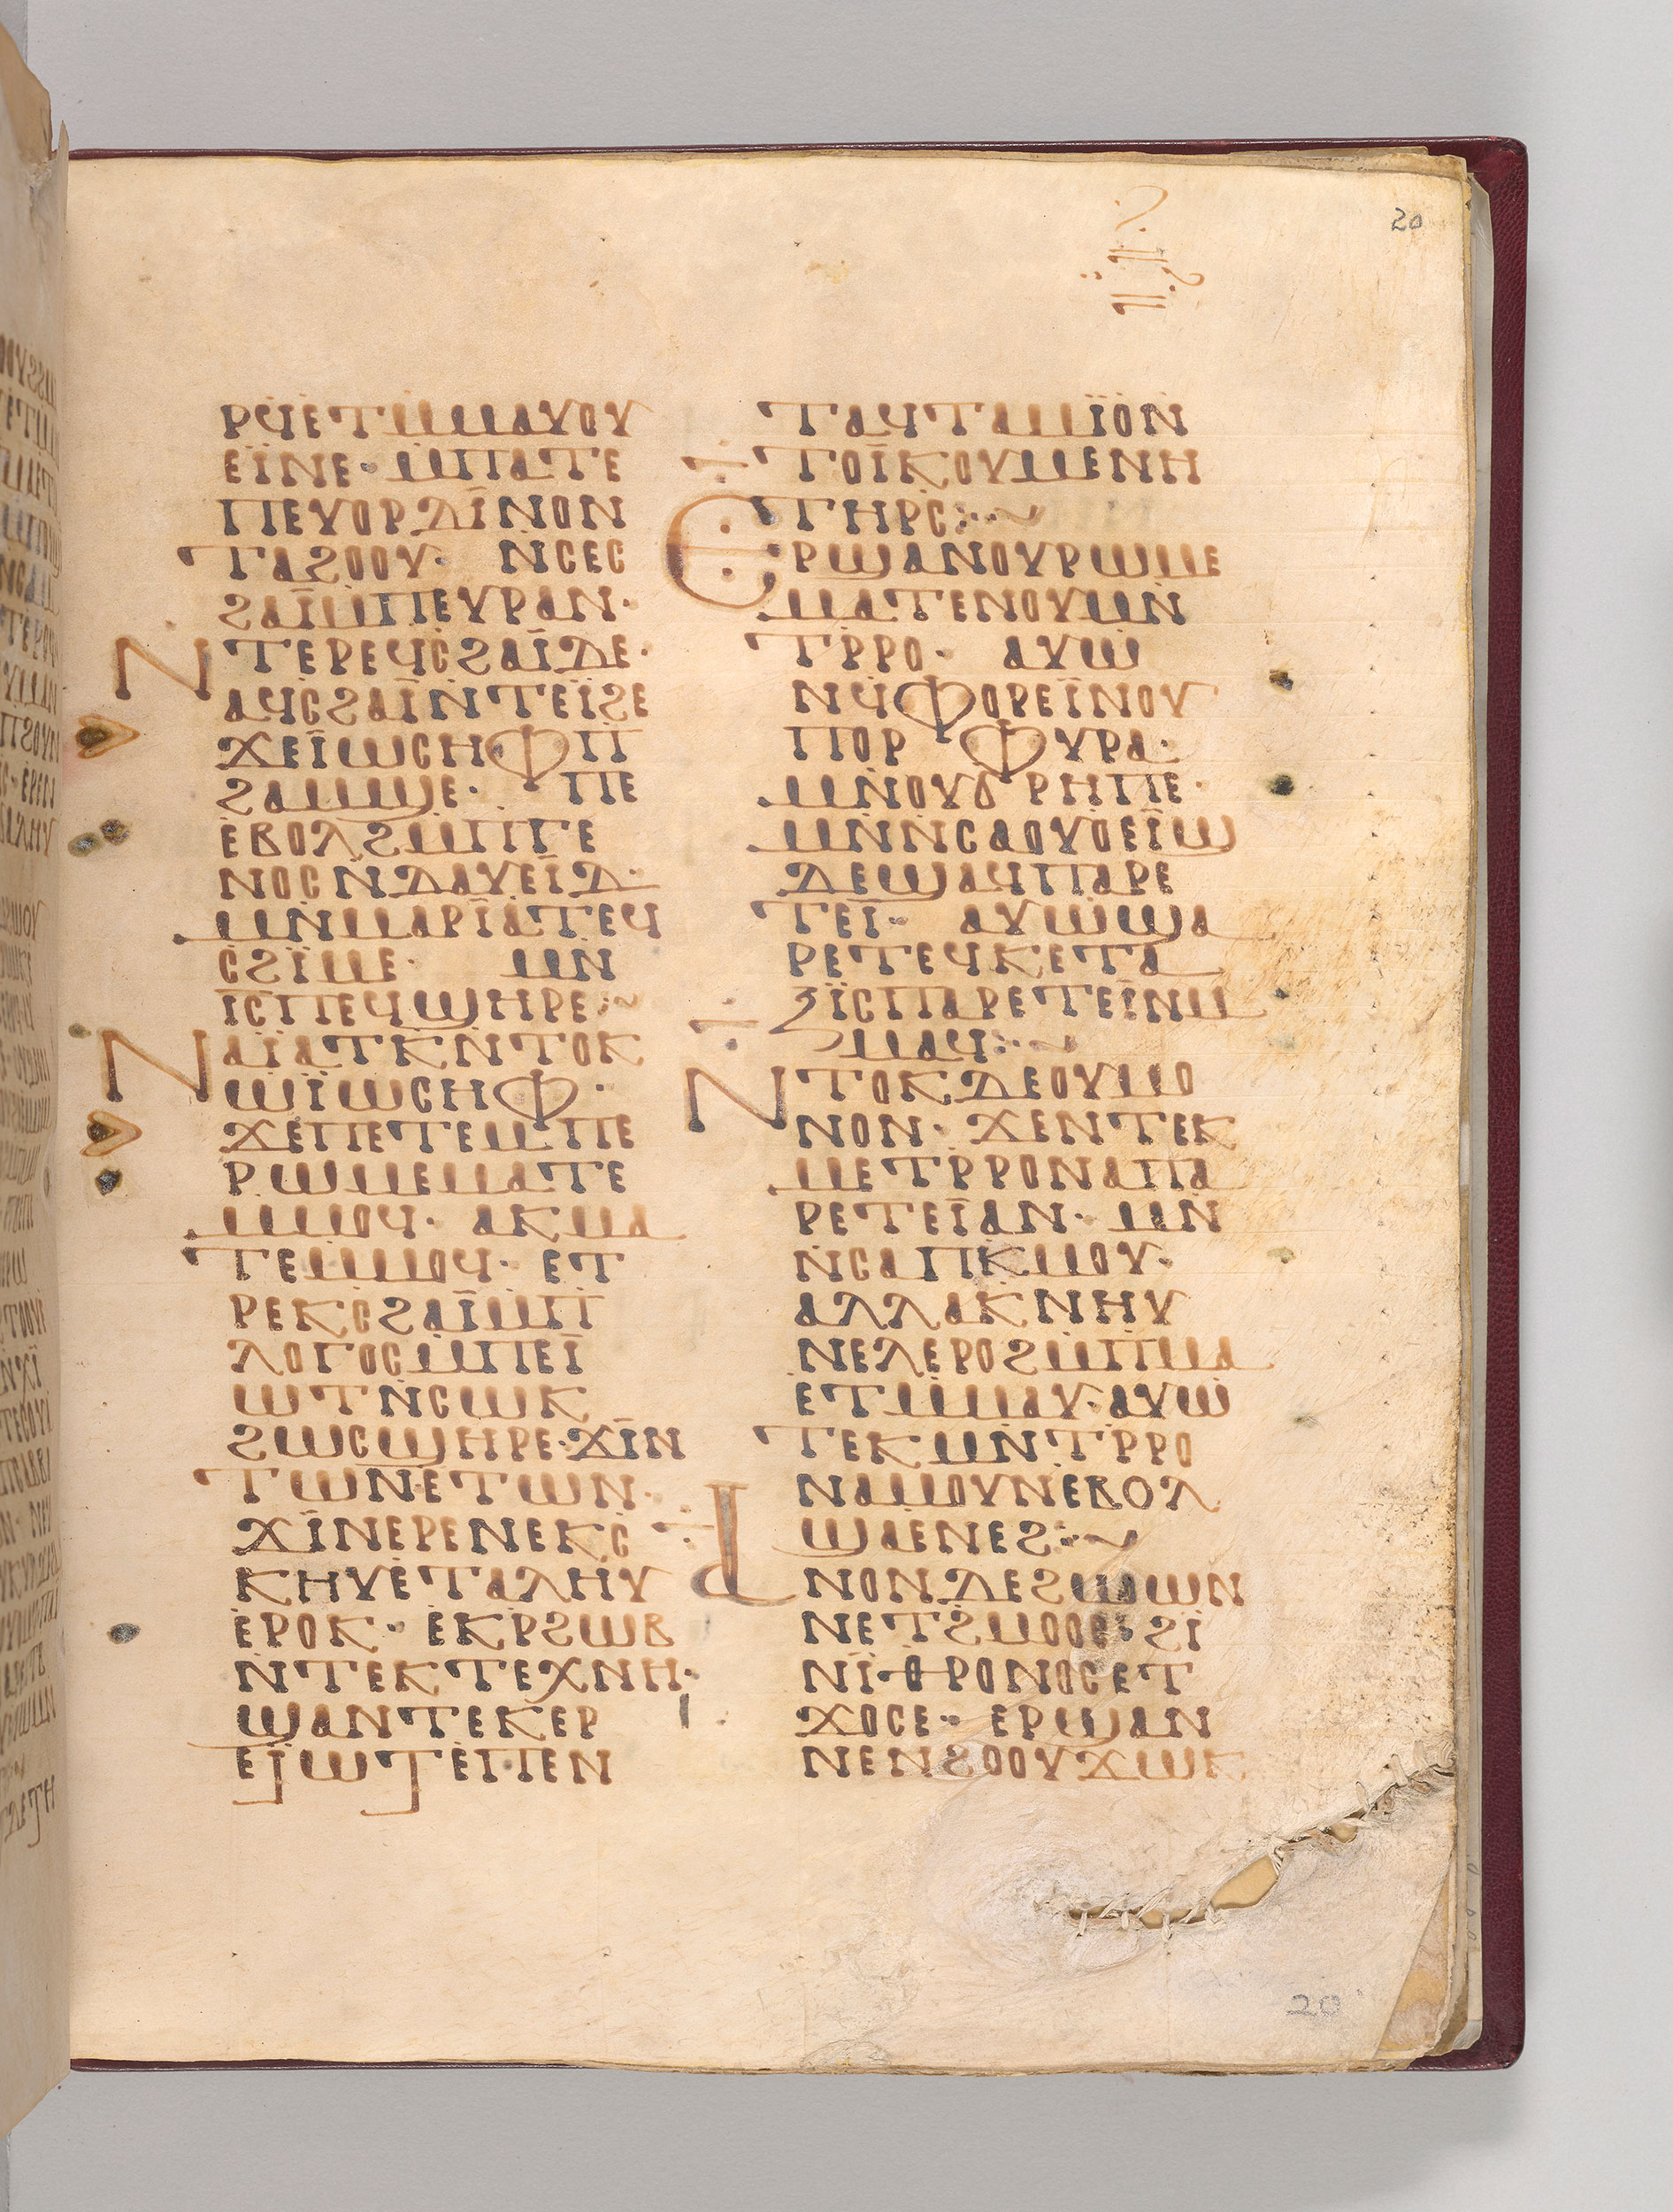 20
ⲣϥⲉⲧⲙⲙⲁⲩⲟⲩ
ⲉⲓⲛⲉ· ⲙⲡⲁⲧⲉ
ⲡⲉⲩⲟⲣⲇⲓⲛⲟⲛ
ⲧⲁϩⲟⲟⲩ· ⲛⲥⲉⲥ
ϩⲁⲓⲙⲡⲉⲩⲣⲁⲛ·
ⲛⲧⲉⲣⲉϥⲥϩⲁⲓⲇⲉ·
ⲁϥⲥϩⲁⲓⲛⲧⲉⲓϩⲉ
ϫⲉⲓⲱⲥⲏⲫⲡ
ϩⲁⲙϣⲉ· ⲡⲉ
ⲉⲃⲟⲗϩⲙⲡⲅⲉ
ⲛⲟⲥⲛⲇⲁⲩⲉⲓⲇ·
ⲙⲛⲙⲁⲣⲓⲁⲧⲉϥ
ⲥϩⲓⲙⲉ· ⲙⲛ
ⲓⲥⲡⲉϥϣⲏⲣⲉ:~
ⲛⲁⲓⲁⲧⲕⲛⲧⲟⲕ
ⲱⲓⲱⲥⲏⲫ·
ϫⲉⲡⲉⲧⲉⲙⲡⲉ
ⲣⲱⲙⲉⲙⲁⲧⲉ
ⲙⲙⲟϥ· ⲁⲕⲙⲁ
ⲧⲉⲙⲙⲟϥ· ⲉⲧ
ⲣⲉⲕⲥϩⲁⲓⲙⲡ
ⲗⲟⲅⲟⲥⲙⲡⲉⲓ
ⲱⲧⲛⲥⲱⲕ
ϩⲱⲥϣⲏⲣⲉ·ϫⲓⲛ
ⲧⲱⲛⲉⲧⲱⲛ·
ϫⲓⲛⲉⲣⲉⲛⲉⲕⲥ
ⲕⲏⲩⲉⲧⲁⲗⲏⲩ
ⲉⲣⲟⲕ· ⲉⲕⲣϩⲱⲃ
ⲛⲧⲉⲕⲧⲉⲭⲛⲏ·
ϣⲁⲛⲧⲉⲕⲉⲣ
ⲉⲓⲱⲧⲉⲡⲉⲛ
ⲧⲁϥⲧⲁⲙⲓⲟⲛ
ⲧⲟⲓⲕⲟⲩⲙⲉⲛⲏ
ⲧⲏⲣⲥ:·~
ⲉⲣϣⲁⲛⲟⲩⲣⲱⲙⲉ
ⲙⲁⲧⲉⲛⲟⲩⲙⲛ
ⲧⲣⲣⲟ· ⲁⲩⲱ
ⲛϥⲫⲟⲣⲉⲓⲛⲟⲩ
ⲡⲟⲣⲫⲩⲣⲁ·
ⲙⲛⲟⲩϭⲣⲏⲡⲉ·
ⲙⲛⲛⲥⲁⲟⲩⲟⲉⲓϣ
ⲇⲉϣⲁϥⲡⲁⲣⲉ
ⲧⲉⲓ· ⲁⲩⲱϣⲁ
ⲣⲉⲧⲉϥⲕⲉⲧⲁ
ⲝⲓⲥⲡⲁⲣⲉⲧⲉⲓⲛⲙ
ⲙⲁϥ:·~
ⲛⲧⲟⲕⲇⲉⲟⲩⲙⲟ
ⲛⲟⲛ· ϫⲉⲛⲧⲉⲕ
ⲙⲉⲧⲣⲣⲟⲛⲁⲡⲁ
ⲣⲉⲧⲉⲓⲁⲛ· ⲙⲛ
ⲛⲥⲁⲡⲕⲙⲟⲩ·
ⲁⲗⲗⲁⲕⲛⲏⲩ
ⲛⲉⲗⲉⲣⲟϩⲙⲡⲙⲁ
ⲉⲧⲙⲙⲁⲩ·ⲁⲩⲱ
ⲧⲉⲕⲙⲛⲧⲣⲣⲟ
ⲛⲁⲙⲟⲩⲛⲉⲃⲟⲗ
ϣⲁⲉⲛⲉϩ:·~
ⲁⲛⲟⲛⲇⲉϩⲱⲱⲛ
ⲛⲉⲧϩⲙⲟⲟⲥ ϩⲓ
ⲛⲓⲑⲣⲟⲛⲟⲥⲉⲧ
ϫⲟⲥⲉ· ⲉⲣϣⲁⲛ
ⲛⲉⲛϩⲟⲟⲩϫⲱⲕ
20